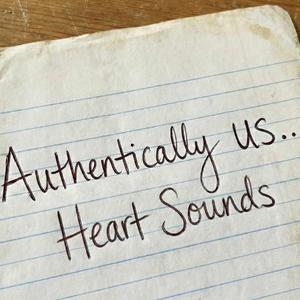 Authentically us..
Heart Sounds